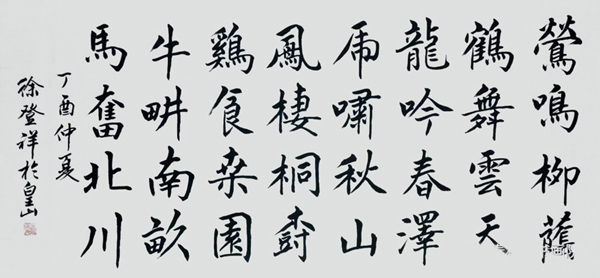 鶯鳴柳蔭
鶴舞雲天
龍吟春澤
虎嘯秋山
鳳棲桐樹
鷄食桑園
牛畊南畝
馬奮北川
丁酉仲夏
徐登祥於皇山